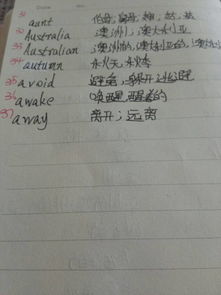 31 aunt 伯母, 舅母, 婶, 姑, 姨
32 Australia 澳洲, 澳大利亚
33 Australian 澳洲的, 澳大利亚的, 澳大利
34 autumn 秋天, 秋季
35 avoid 避免, 躲开, 逃避
36 awake 唤醒, 醒着的
37 away 离开; 远离